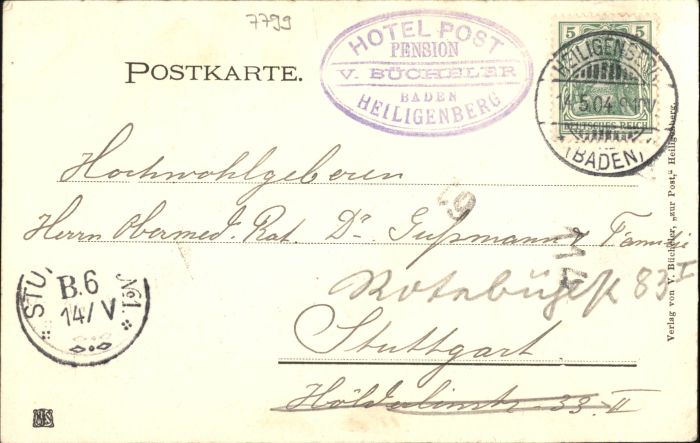 7799
HOTEL POST
PENSION
V. BÜCHELER
BADEN
HEILIGENBERG
POSTKARTE.
5 5
DEUTSCHES REICH
HEILIGENBERG
14.5.04.
(BADEN)
Hochwohlgeboren
Herrn Obermed. Rat. Dr. Gußmann & Familie
14
Rotebühlstr 83 I
Stuttgart
Hölderlinstr. 33. II
STU
No1.
B.6
14/V
Verlag von V. Bücheler, „zur Post,“ Heiligenberg.